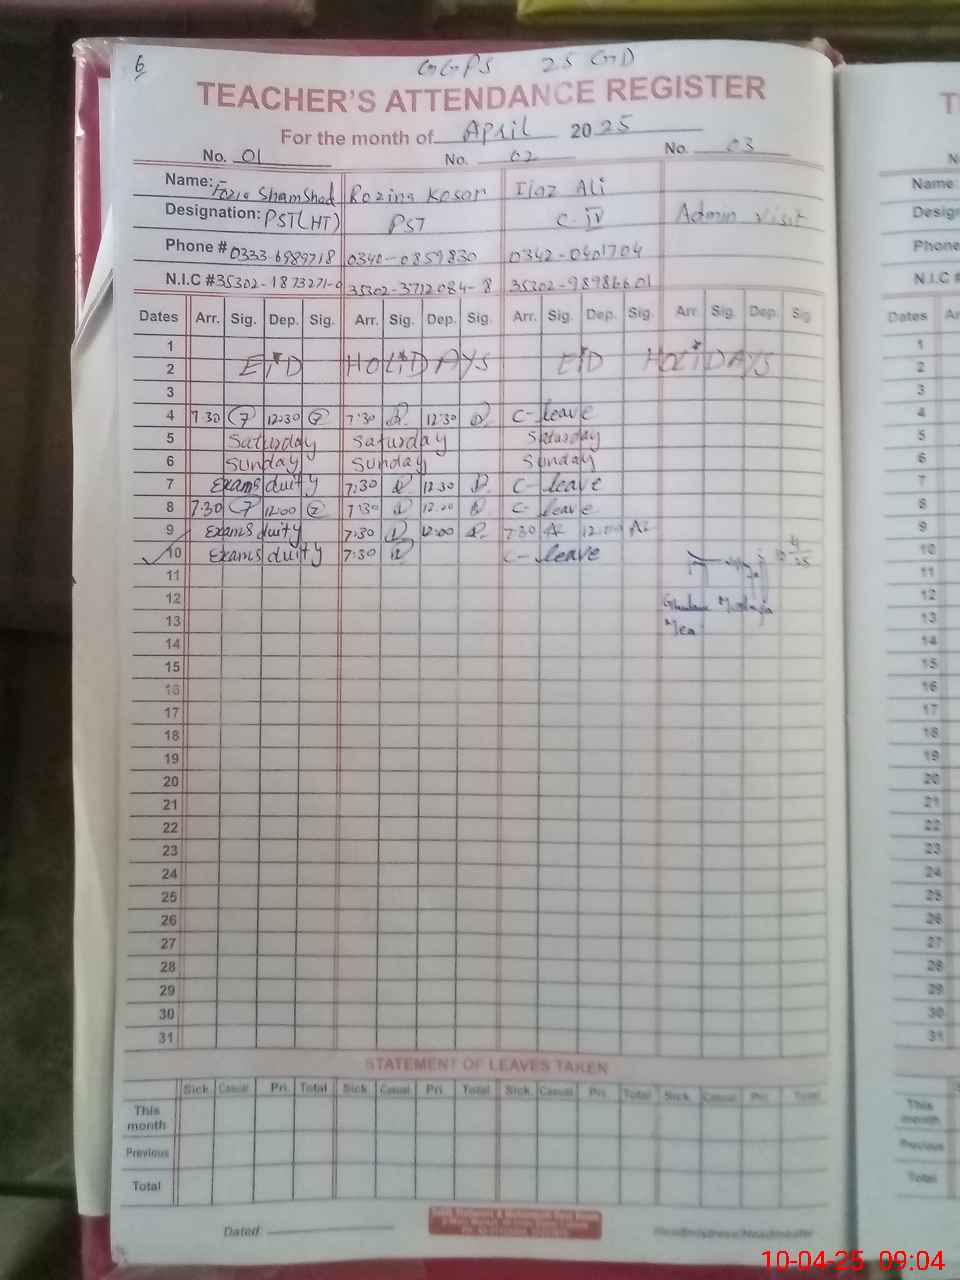 6
GGPS 25 GD
TEACHER'S ATTENDANCE REGISTER
For the month of April 2025
No. 01 No. 02 No. 03
Name: Fozia Shamshad Rozina Kosar Ijaz Ali
Designation: PST(HT) PST C-IV Admin visit
Phone # 0333 6989718 0340-0859830 0342-0401704
N.I.C # 35302-1873271-0 35302-3712084-8 35302-98986601
Dates Arr. Sig. Dep. Sig. Arr. Sig. Dep. Sig. Arr. Sig. Dep. Sig. Arr. Sig. Dep. Sig
1
2 EID HOLIDAYS EID HOLIDAYS
3
4 7:30 12:30 7:30 12:30 C-leave
5 Saturday Saturday Saturday
6 Sunday Sunday Sunday
7 Exams duity 7:30 12:30 C-leave
8 7:30 12:00 7:30 12:00 C-leave
9 Exams duity 7:30 12:00 7:30 12:00
10 Exams duity 7:30 C-leave
11
12
13 Mea
14
15
16
17
18
19
20
21
22
23
24
25
26
27
28
29
30
31
STATEMENT OF LEAVES TAKEN
Sick. Casual Pri. Total Sick. Casual Pri. Total Sick. Casual Pri. Total Sick. Casual Pri. Total
This month
Previous
Total
Dated Headmistress/Headmaster
10-04-25 09:04
T
Name:
Phone
N.I.C #
Dates
1
2
3
4
5
6
7
8
9
10
11
12
13
14
15
16
17
18
19
20
21
22
23
24
25
26
27
28
29
30
31
This month
Previous
Total